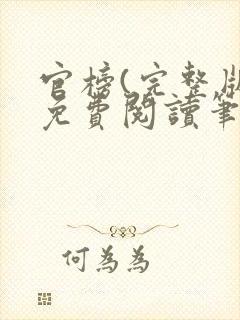 官榜(完整版
免費閱讀筆
何為為